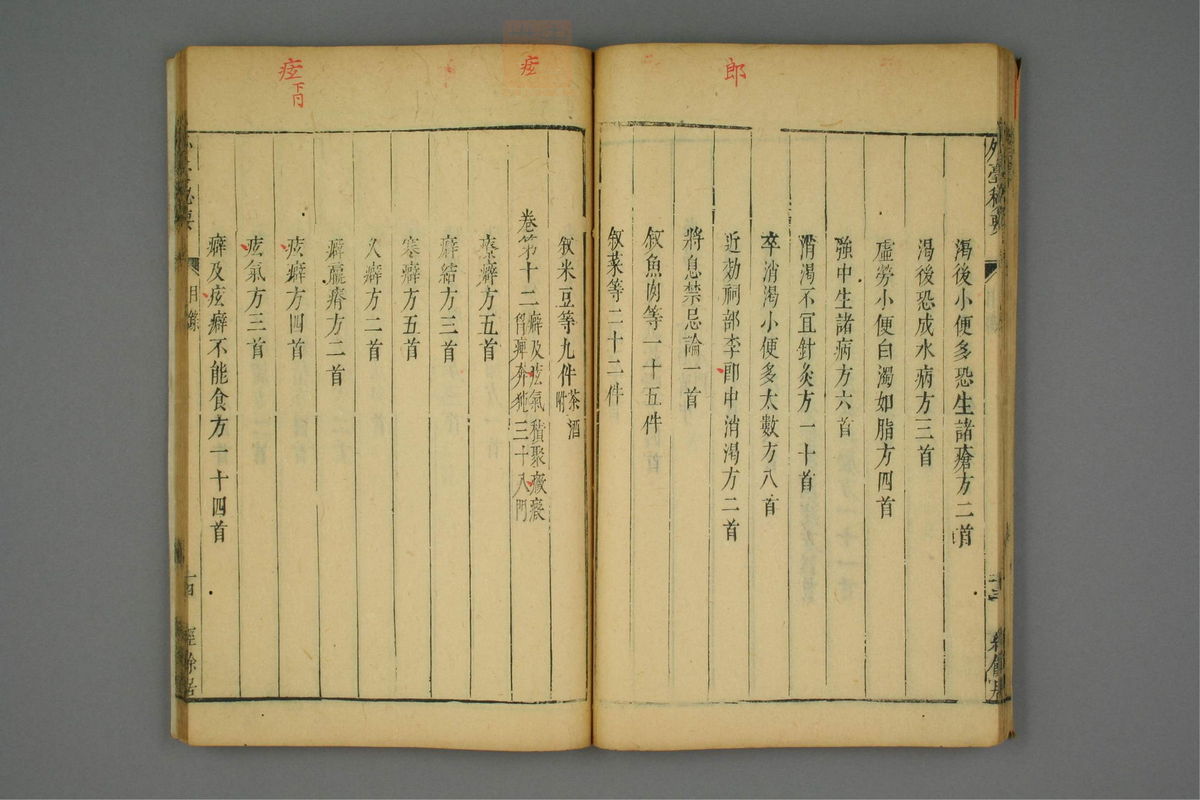 郎
外臺秘要
渴後小便多恐生諸瘡方二首
渴後恐成水病方三首
虛勞小便白濁如脂方四首
強中生諸病方六首
消渴不宜針灸方一十首
卒消渴小便多太數方八首
近効祠部李郎中消渴方二首
將息禁忌論一首
敘魚肉等一十五件
敘菜等二十二件
敘米豆等九件茶酒附
卷第十二癖及痃氣積聚癥瘕胷痺奔㹠三十八門
療癖方五首
癖結方三首
寒癖方五首
久癖方二首
癖羸瘠方二首
痃癖方四首
痃氣方三首
癖及痃癖不能食方一十四首
目錄
十四
經餘居